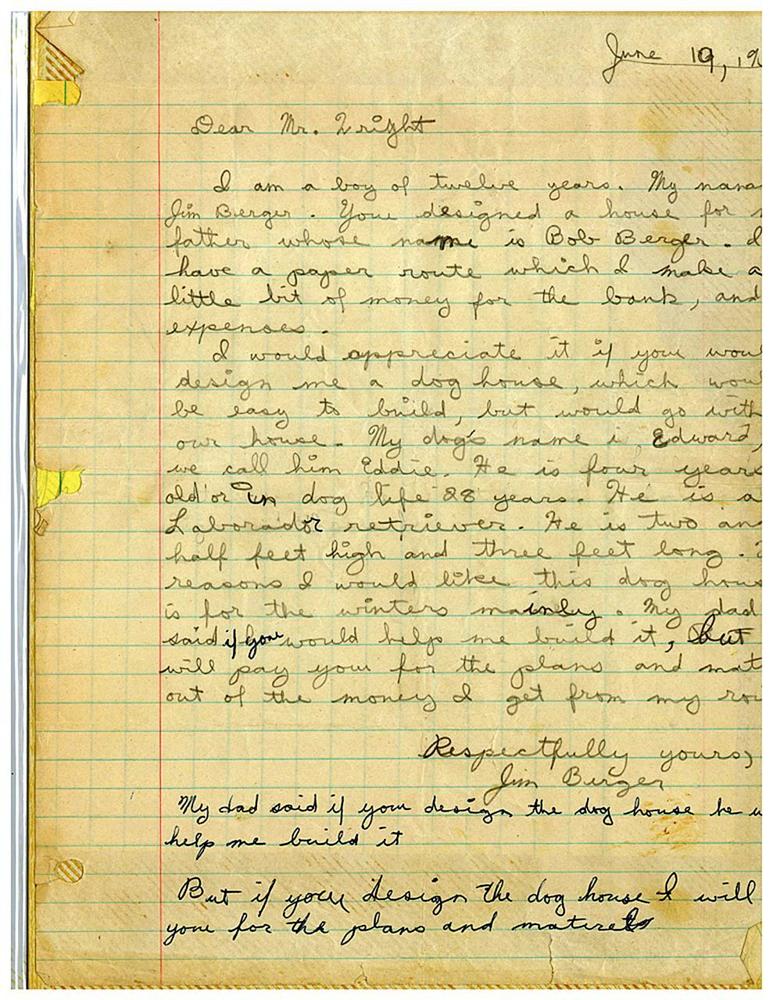 June 19, 19
Dear Mr. Wright
I am a boy of twelve years. My name
Jim Berger. You designed a house for
father whose name is Bob Berger. I
have a paper route which I make a
little bit of money for the bank, and
expenses.
I would appreciate it if you wou
design me a dog house, which wou
be easy to build, but would go with
our house. My dog's name i Edward,
we call him Eddie. He is four years
old or in dog life 28 years. He is a
Laborador retriever. He is two an
half feet high and three feet long.
reasons I would like this dog hous
is for the winters mainly. My dad
said if you would help me build it, but
will pay you for the plans and mat
out of the money I get from my rou
Respectfully yours,
Jim Berger
My dad said if you design the dog house he w
help me build it
But if you design the dog house I will
you for the plans and materels